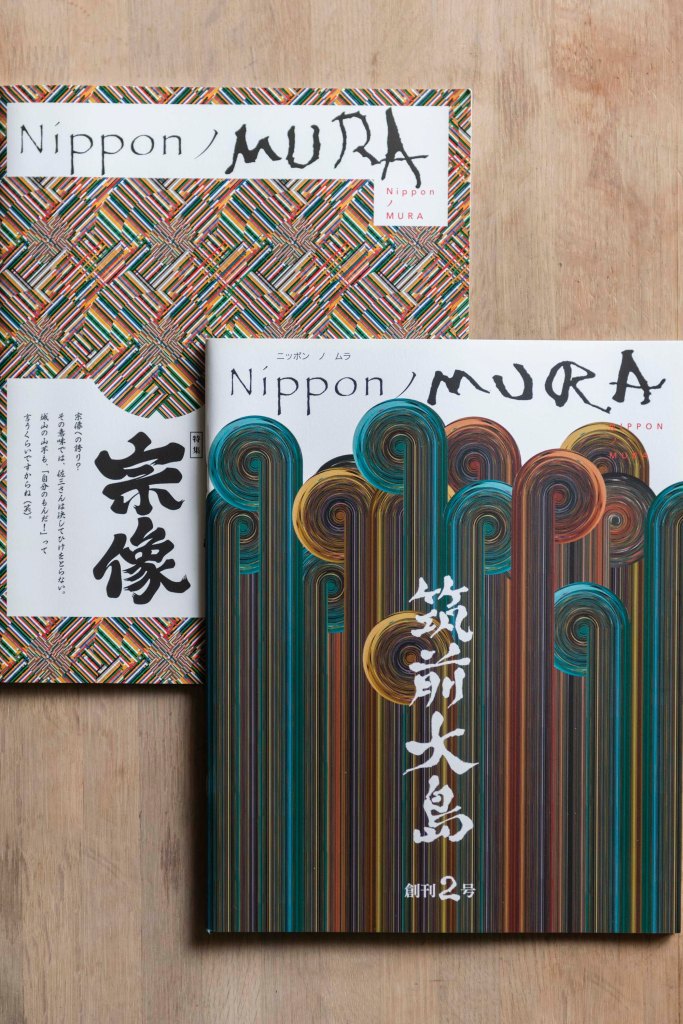 Nippon ノ MURA
Nippon
ノ
MURA
特集
宗像
宗像への誇り?
その意味では、佐三さんは決してひけをとらない。
城山の山芋も、「自分のもんだ!」って
言うくらいですからね(笑)。
ニッポン ノ ムラ
Nippon ノ MURA
NIPPON
MURA
筑前大島
創刊2号